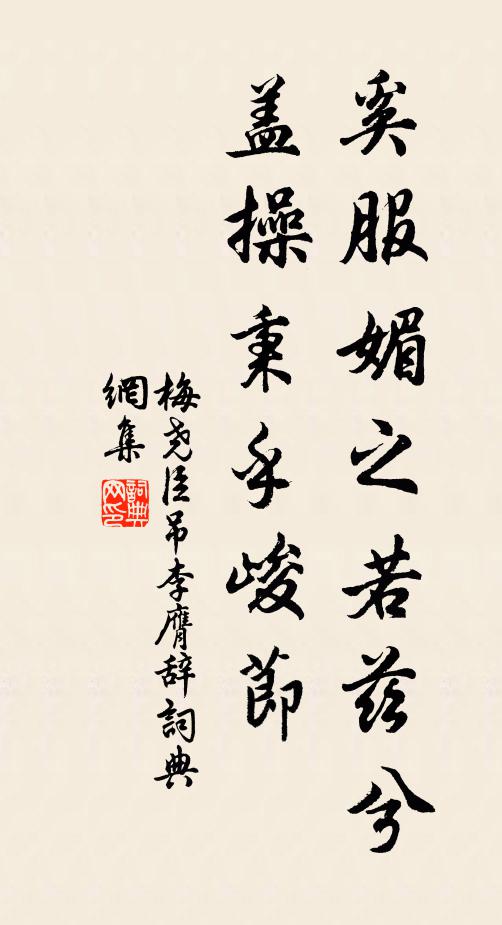 奚服媚之若兹兮
盖操秉乎峻節
梅尧臣吊李膺辞詞典
網集
詞典
网印